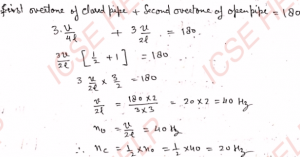 First overtone of closed pipe + Second overtone of open pipe = 180
3·v/4l + 3 v/2l = 180
3v/2l [1/2 + 1] = 180
3 v/2l × 3/2 = 180
v/2l = 180×2/3×3 = 20×2 = 40 Hz
n₀ = v/2l = 40 Hz
∴ n_c = 1/2 × n₀ = 1/2 × 40 = 20 Hz